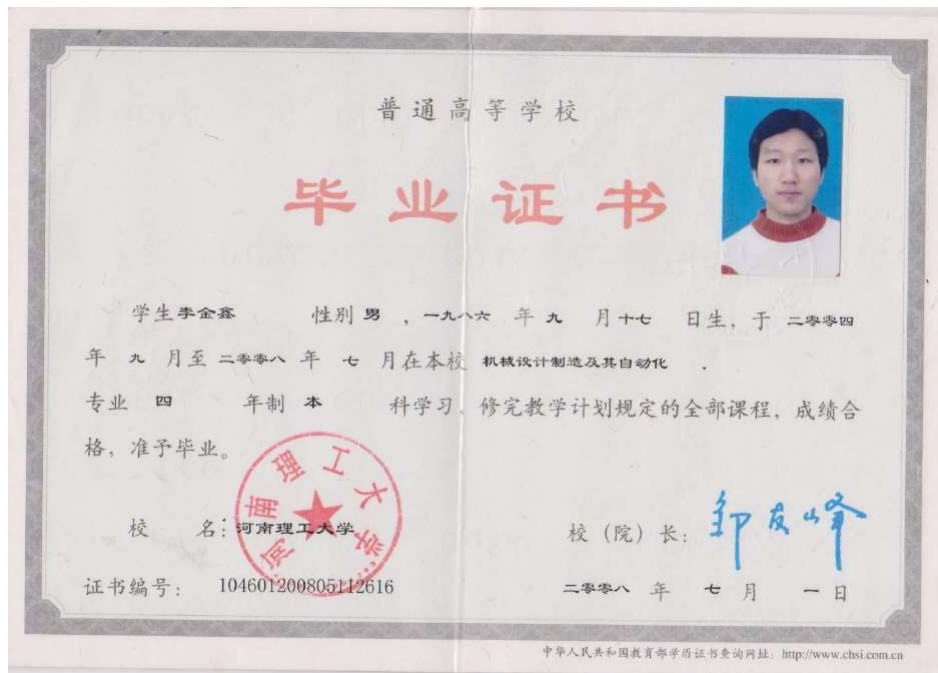 普通高等学校
毕业证书
学生李金鑫 性别 男 ,一九八六 年 九 月十七 日生, 于 二零零四
年 九 月至 二零零八 年 七 月在本校 机械设计制造及其自动化 .
专业 四 年制 本 科学习、修完教学计划规定的全部课程, 成绩合
格, 准予毕业。
河南理工大学
校 名: 河南理工大学
校 (院) 长: 邹友峰
证书编号: 104601200805112616
二零零八 年 七 月 一 日
中华人民共和国教育部学历证书查询网址: http://www.chsi.com.cn